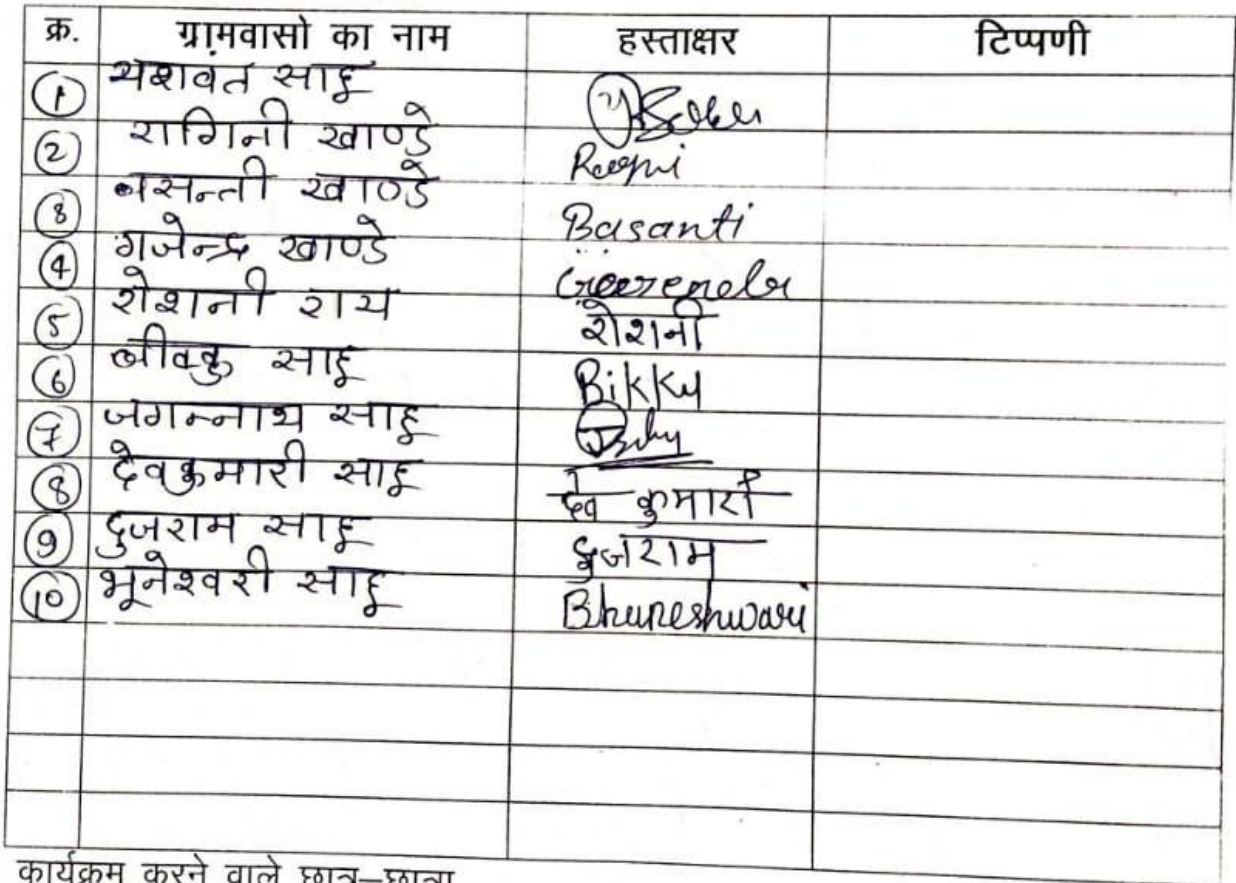 क्र. ग्रामवासो का नाम हस्ताक्षर टिप्पणी
1 यशवंत साहू
2 रागिनी खाण्डे Ragni
3 बसन्ती खाण्डे Basanti
4 गजेन्द्र खाण्डे
5 रोशनी राय रोशनी
6 बीक्कु साहू Bikky
7 जगन्नाथ साहू
8 देवकुमारी साहू देव कुमारी
9 दुजराम साहू दुजराम
10 भूनेश्वरी साहू Bhuneshwari
कार्यक्रम करने वाले छात्र–छात्रा